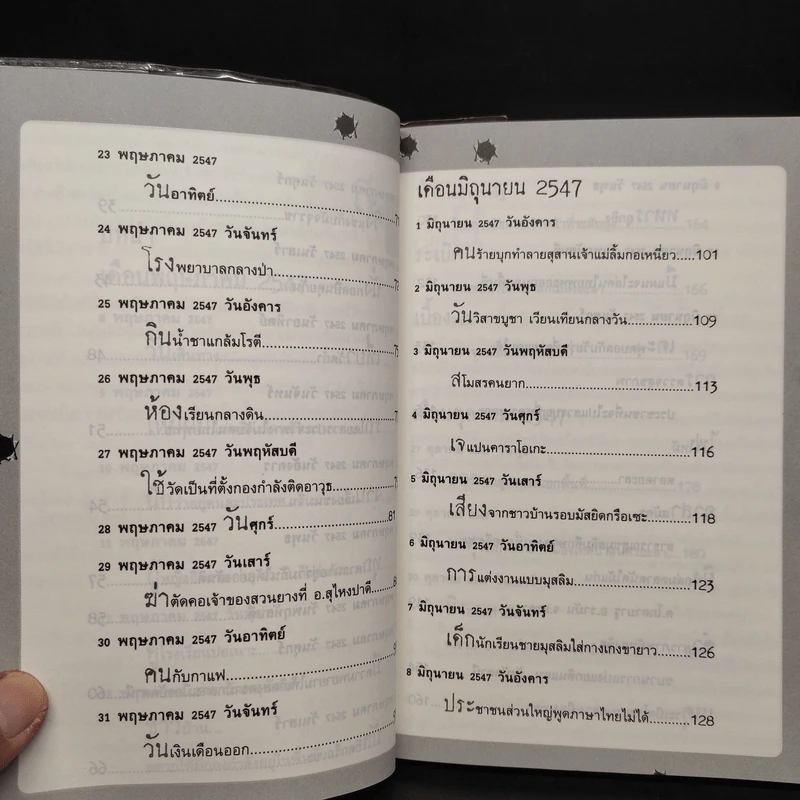 23 พฤษภาคม 2547
วันอาทิตย์
24 พฤษภาคม 2547 วันจันทร์
โรงพยาบาลกลางป่า
25 พฤษภาคม 2547 วันอังคาร
กินน้ำชาแกล้มโรตี
26 พฤษภาคม 2547 วันพุธ
ห้องเรียนกลางดิน
27 พฤษภาคม 2547 วันพฤหัสบดี
ใช้วัดเป็นที่ตั้งกองกำลังติดอาวุธ
28 พฤษภาคม 2547 วันศุกร์ 81
29 พฤษภาคม 2547 วันเสาร์
ฆ่าตัดคอเจ้าของสวนยางที่ อ.สุไหงปาดี
30 พฤษภาคม 2547 วันอาทิตย์
คนกับกาแฟ
31 พฤษภาคม 2547 วันจันทร์
วันเงินเดือนออก
เดือนมิถุนายน 2547
1 มิถุนายน 2547 วันอังคาร
คนร้ายบุกทำลายสุสานเจ้าแม่ลิ้มกอเหนี่ยว.....101
2 มิถุนายน 2547 วันพุธ
วันวิสาขบูชา เวียนเทียนกลางวัน 109
3 มิถุนายน 2547 วันพฤหัสบดี
สโมสรคนยาก 113
4 มิถุนายน 2547 วันศุกร์
เจแปนคาราโอเกะ 116
5 มิถุนายน 2547 วันเสาร์
เสียงจากชาวบ้านรอบมัสยิดกรือเซะ 118
6 มิถุนายน 2547 วันอาทิตย์
การแต่งงานแบบมุสลิม 123
7 มิถุนายน 2547 วันจันทร์
เด็กนักเรียนชายมุสลิมใส่กางเกงขายาว 126
8 มิถุนายน 2547 วันอังคาร
ประชาชนส่วนใหญ่พูดภาษาไทยไม่ได้ 128